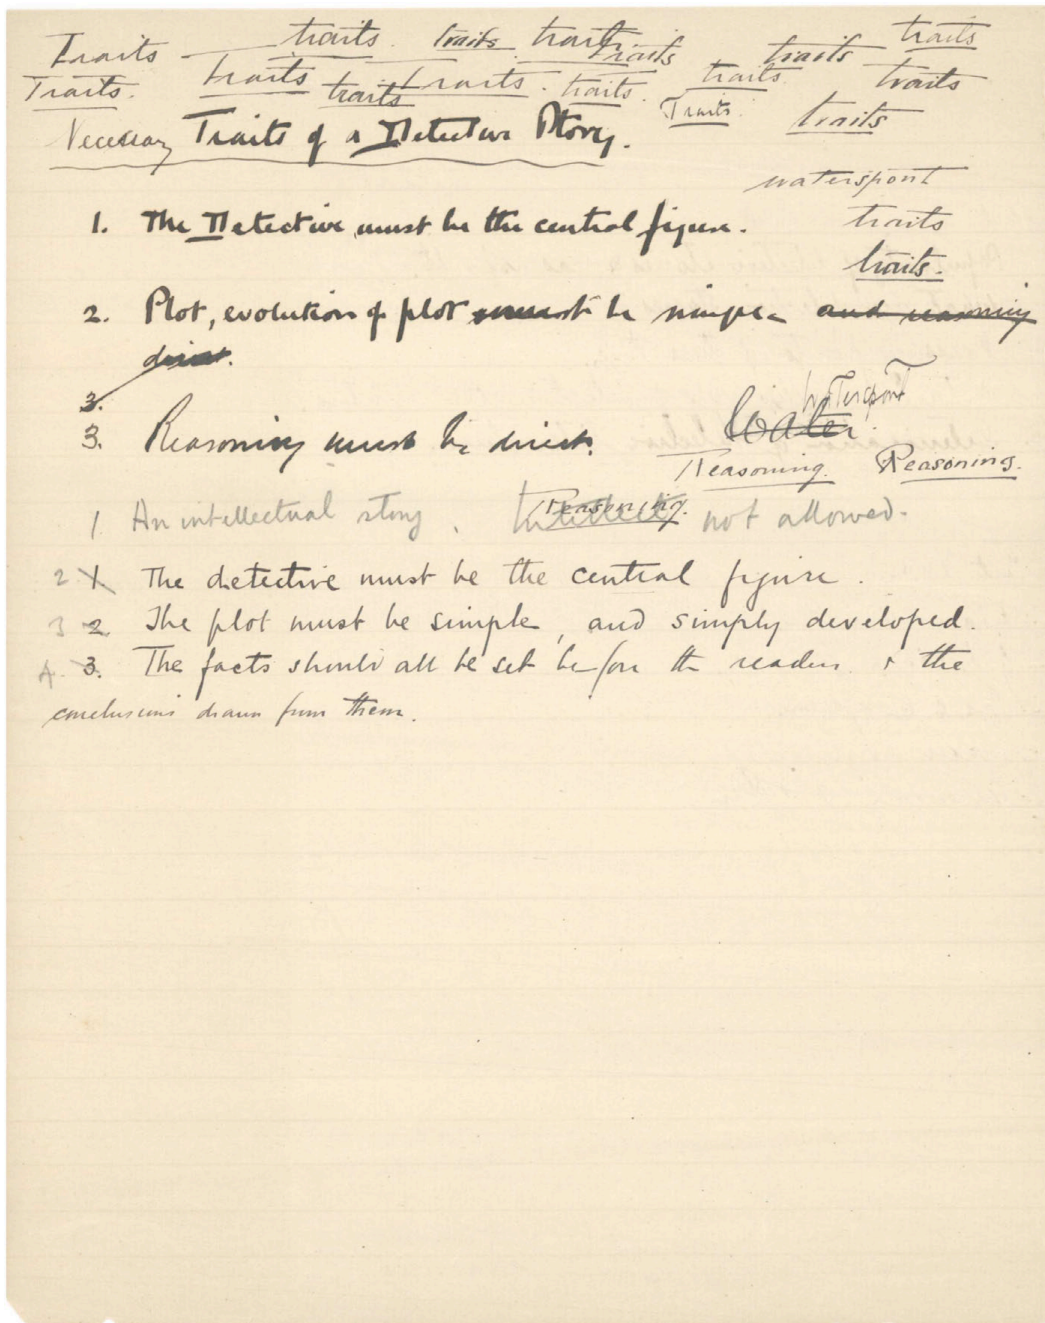 Traits traits. traits traits traits traits traits
Traits. traits traits traits. traits. traits. traits
Necessary Traits of a Detective Story. Traits. traits
waterspout
1. The Detective must be the central figure. traits
traits.
2. Plot, evolution of plot must be simple and reasoning
direct.
3. waterspout
3. Reasoning must be direct. Water.
Reasoning. Reasoning.
1. An intellectual story. Reasoning. not allowed.
2 1 The detective must be the central figure.
3 2 The plot must be simple, and simply developed.
4. 3. The facts should all be set before the reader & the
conclusions drawn from them.